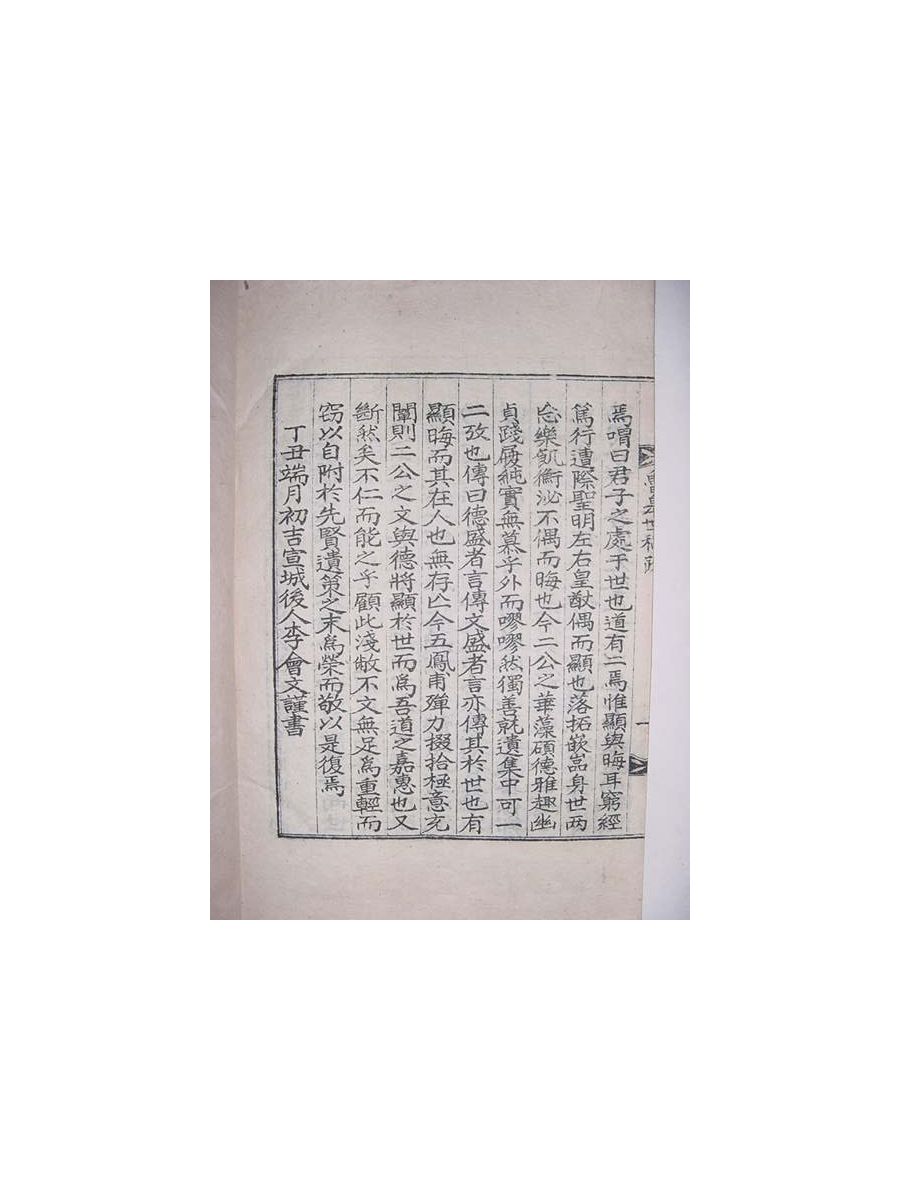 焉喟曰君子之處于世也道有二焉惟顯與晦耳窮經
篤行遭際聖明左右皇猷偶而顯也落拓嵌嵓身世两
忘樂飢衡泌不偶而晦也今二公之華藻碩德雅趣幽
貞踐履純實無慕乎外而嘐嘐然獨善就遺集中可一
二攷也傳曰德盛者言傳文盛者言亦傳其於世也有
顯晦而其在人也無存亡今五鳳甫殫力掇拾極意充
闡則二公之文與德將顯於世而爲吾道之嘉惠也又
斷然矣不仁而能之乎顧此淺敝不文無足爲重輕而
窃以自附於先賢遺策之末爲榮而敬以是復焉
丁丑端月初吉宣城後人李會文謹書
世稿
一